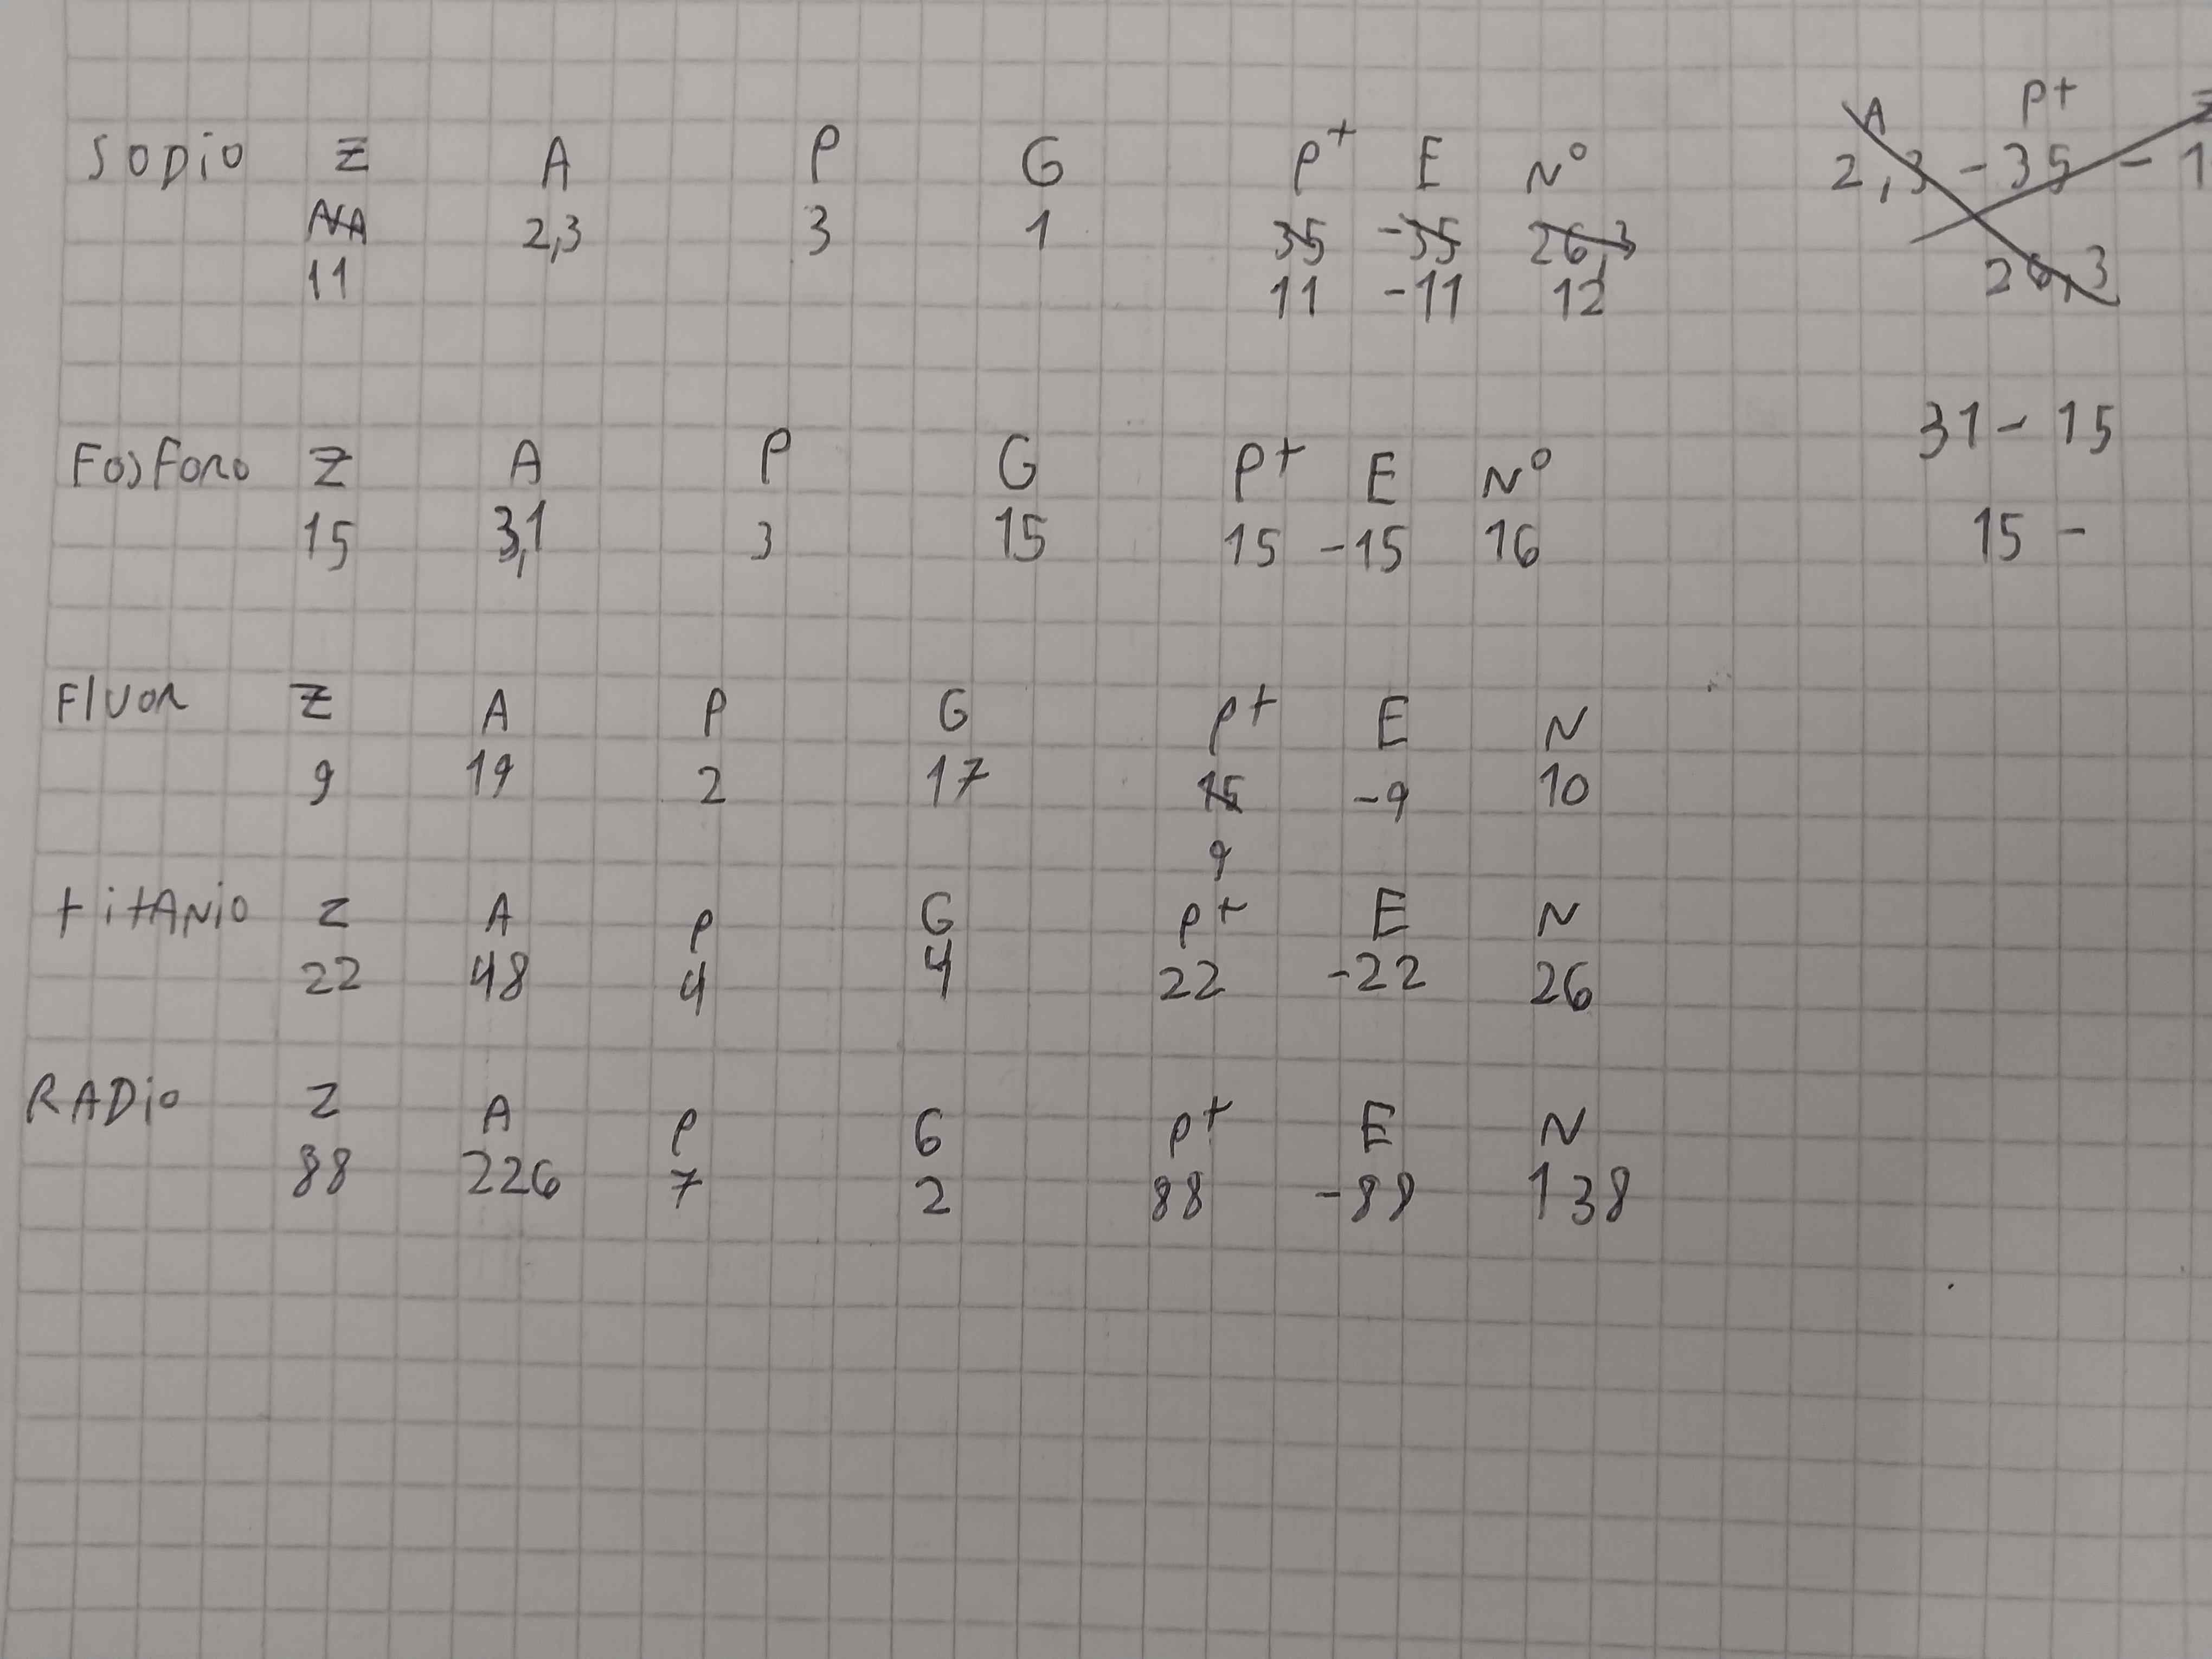 SODIO Z A P G P+ E N° A P+ Z
NA 2,3 3 1 35 -35 26,3 2,3 - 35 - 1
11 11 -11 12 26,3
31 - 15
FOSFORO Z A P G P+ E N°
15 3,1 3 15 15 -15 16 15 -
FlUOR Z A P G P+ E N
9 19 2 17 15 -9 10
9
titANiO Z A P G P+ E N
22 48 4 4 22 -22 26
RADiO Z A P G P+ E N
88 226 7 2 88 -88 138